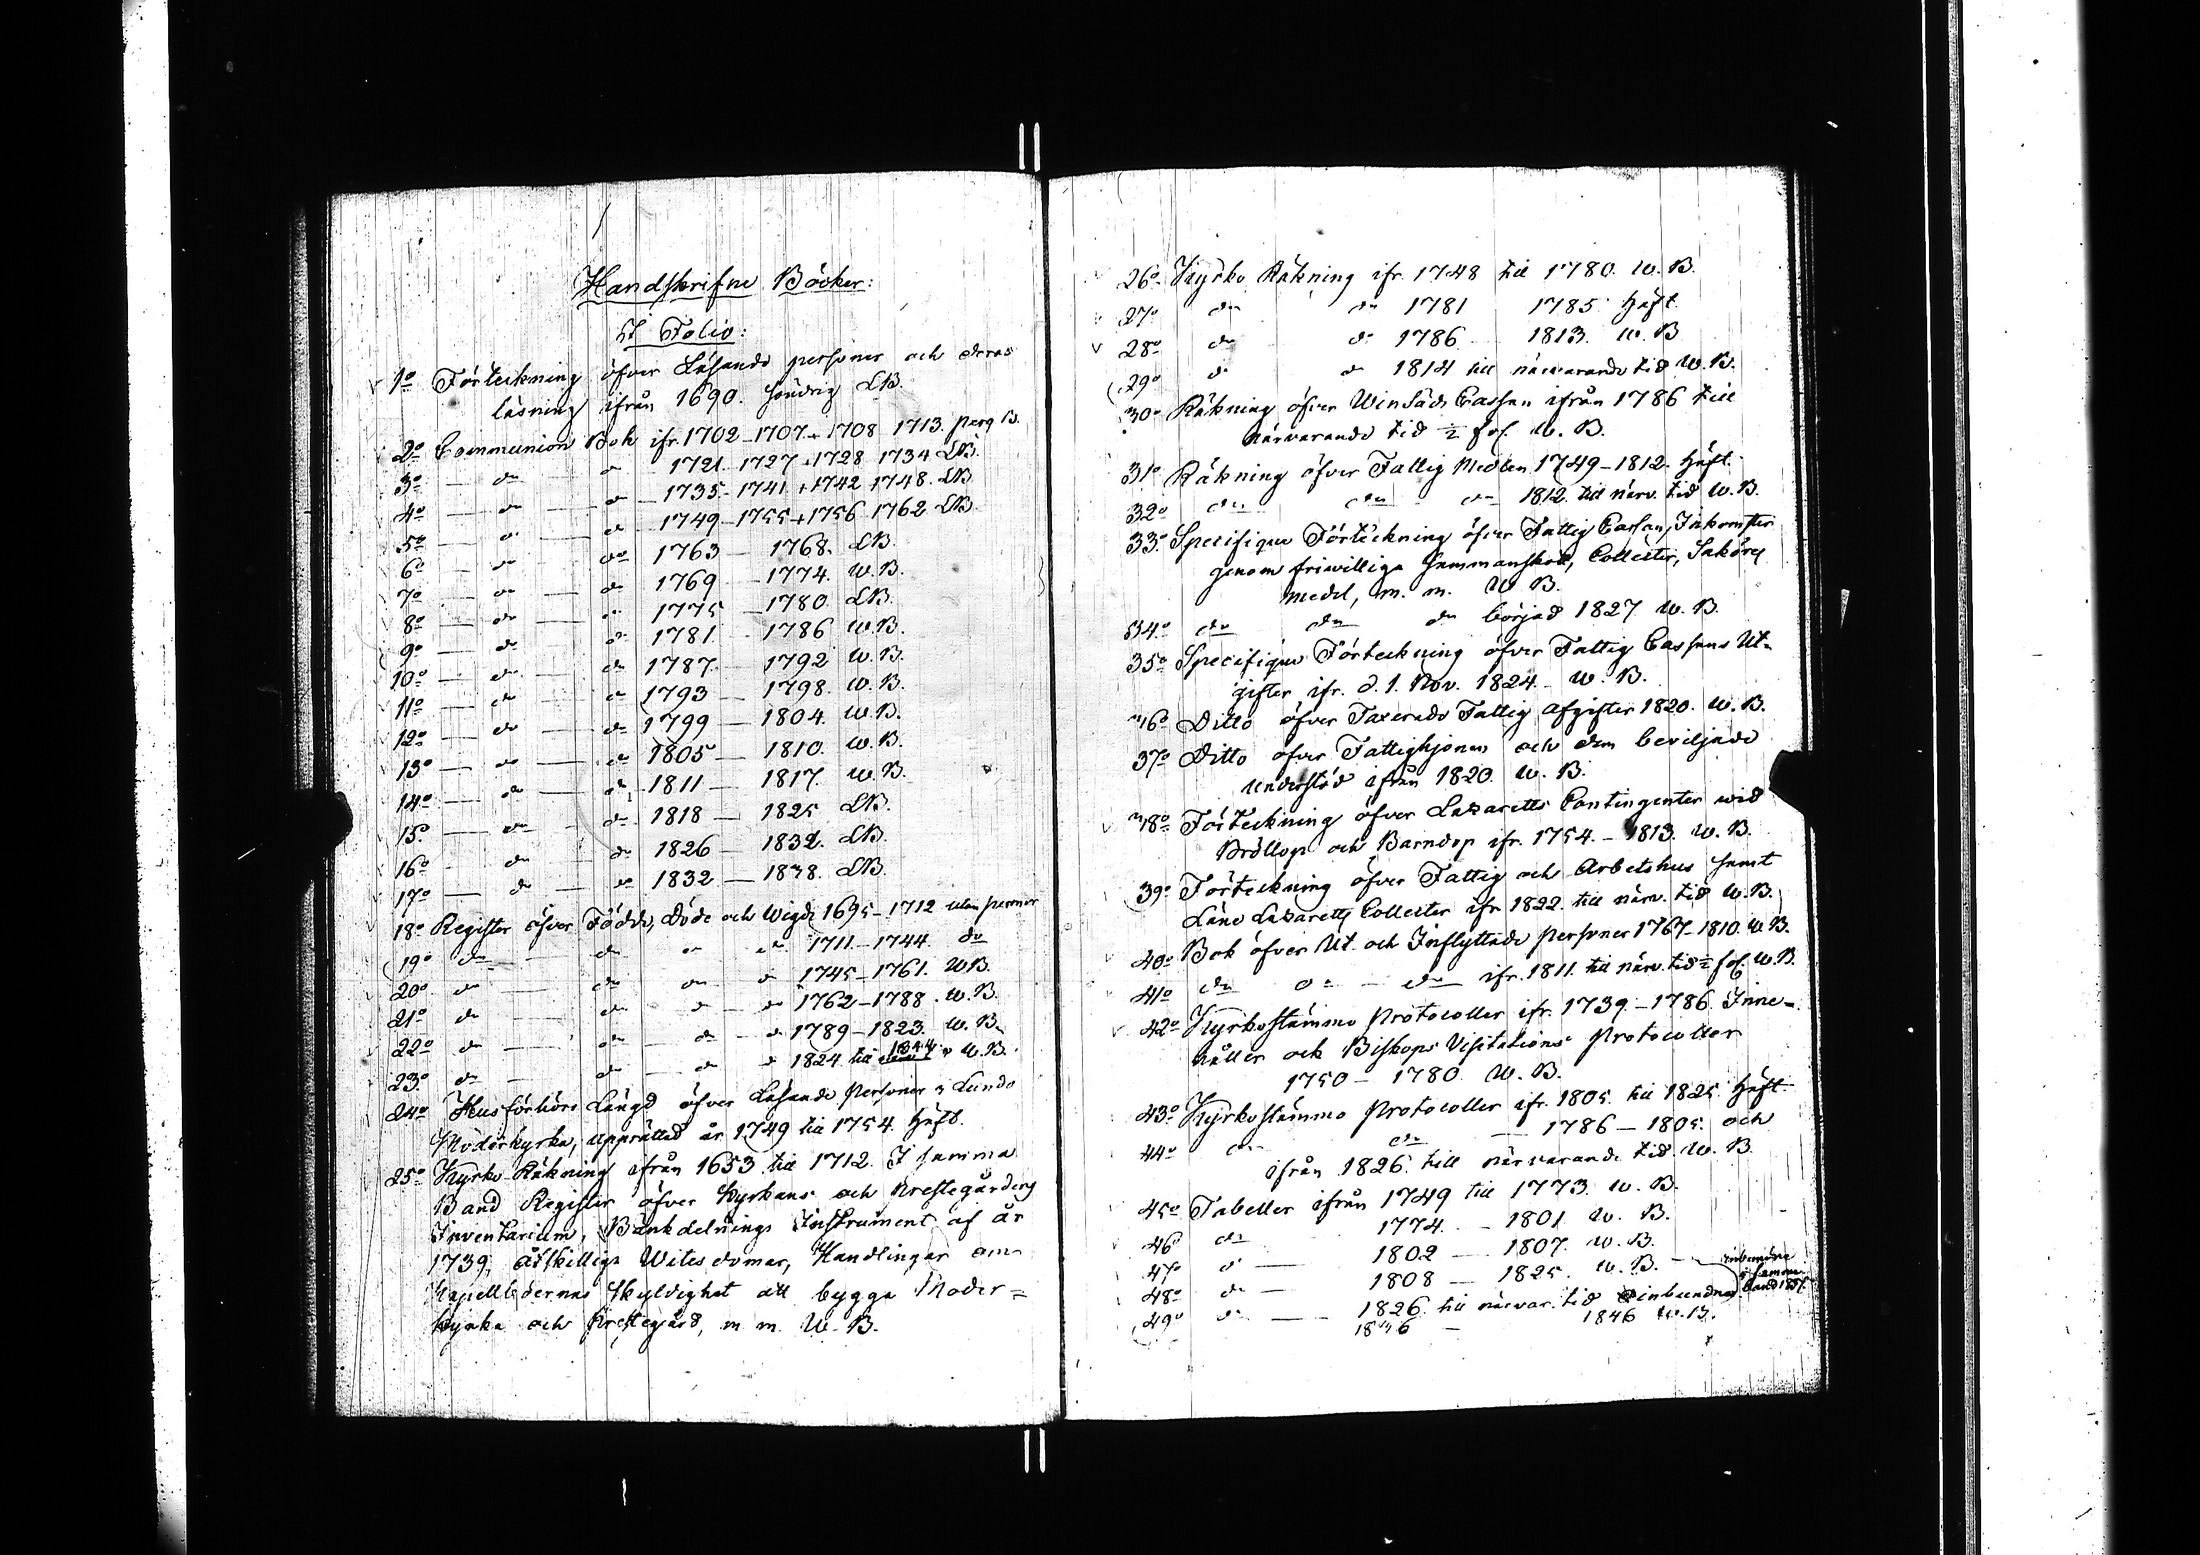 Handskrifne Böcker:
I Folio:
1o Förteckning öfver Läsande personer och deras
läsning ifrån 1690. Söndrig LB.
2o Communion Bok ifr. 1702-1707 + 1708 1713. perg B.
3o — do — do 1721-1727 + 1728 1734 LB.
4o — do — do — 1735-1741 + 1742 1748. LB
5o — do — do 1749-1755 + 1756 1762 LB
6o — do — do 1763 — 1768. LB
7o — do — do 1769 — 1774. W.B.
8o — do — do 1775 — 1780 LB.
9o — do — do 1781 - 1786 W.B.
10o — do — do 1787 - 1792 W.B.
11o — do — do 1793 — 1798. W.B.
12o — do — do 1799 — 1804. W.B.
13o — do — do 1805 — 1810. W.B.
14o — do — do 1811 — 1817. W.B.
15o — do — do 1818 — 1825 LB.
16o - do — do 1826 — 1832. LB.
17o — do — do 1832 — 1838. LB.
18o Register öfver Födde, Döde och Wigde 1695-1712 utan permar
19o do — do do do 1711-1744 do
20o do — do do do 1745-1761. WB.
21o do — do do do 1762-1788. W.B.
22o do — do do do 1789-1823. W.B.
23o do — do do do 1824 till 1844 W.B.
24o Husförhörs Längd öfver Läsande Personer i Lundo
Moderkyrka, upprättad år 1749 till 1754. Häft.
25o Kyrko Räkning ifrån 1653 till 1712. I samma
Band Register öfver Kyrkans och Prestegårdens
Inventarium, Bänkdelnings Instrument af år
1739, åtskillige Wites domar, Handlingar om
Kapellbodernas Skyldighet att bygga Moder=
kyrka och Prestegård, m m. W.B.
26o Kyrko Räkning ifr. 1748 till 1780. W.B.
27o do do 1781 1785 Häft
28o do do 1786 1813. W.B
29o do do 1814 till närvarande tid W.B.
30o Räkning öfver WinSäds Cassan ifrån 1786 till
närvarande tid ½ fol. W.B.
31o Räkning öfver Fattig Medlen 1749-1812. Häft.
32o do do do 1812. till närv. tid W.B.
33o Specifique Förteckning öfver Fattig Cassans Inkomster
genom friwilliga Sammanskott, Collecter, Saköres
medel, m. m. W.B.
34o do do do börjad 1827 W.B.
35o Specifique Förteckning öfver Fattig Cassans Ut=
gifter ifr. d. 1. Nov. 1824 W.B.
36o Ditto öfver Taxerade Fattig afgifter 1820. W.B.
37o Ditto öfver Fattighjonen och dem beviljade
understöd ifrån 1820. W.B.
38o Förteckning öfver Lazaretts Contingenter wid
Bröllop och Barndop ifr. 1754.-1813. W.B.
39o Förteckning öfver Fattig och Arbetshus samt
Läne Lazaretts Collecter ifr 1822. till närv. tid W.B.
40o Bok öfver Ut och Inflyttade personer 1767-1810. W.B.
41o do do — do ifr. 1811. till närv. tid ½ fol. W.B.
42o Kyrkostämmo Protocoller ifr. 1739.-1786. Inne=
håller och Biskops Visitations Protocoller
1750 - 1780. W.B.
43o Kyrkostämmo Protocoller ifr. 1805. till 1825. Häft
44o do do — 1786 - 1805. och
ifrån 1826. till närvarande tid. W.B.
45o Tabeller ifrån 1749 till 1773. W.B.
46o do 1774. - 1801 W.B.
47o do — 1802 — 1807. W.B.
48o do — 1808 — 1825. W.B. — inbundna
i samma
band 1857.
49o do — 1826. till närvar. tid inbundna
1846 — 1846 W.B.